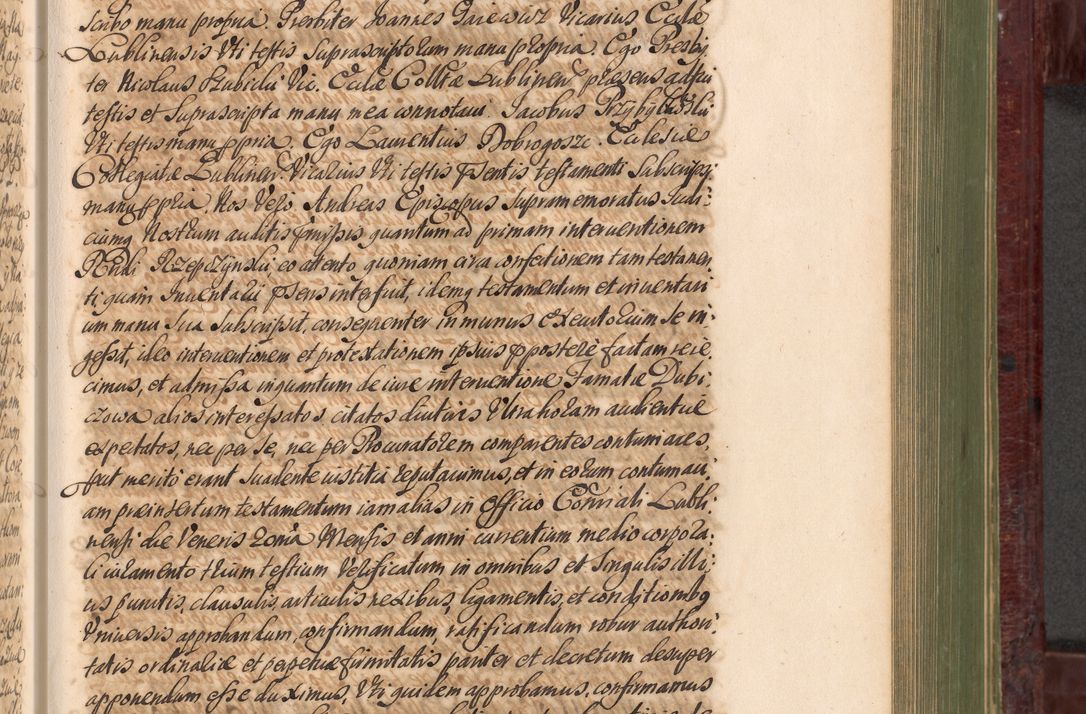 scribo manu propria. Presbiter Joannes Gaiewicz Vicarius Eccliæ
Lublinensis Uti testis Suprascriptorum manu propria. Ego Presby
ter Nicolaus Szubicki Vic. Ecclæ Colltæ Lublinen: præsens adfui
testis et Suprascripta manu mea connotavi. Jacobus
Uti testis manu ppria. Ego Laurentius Dobrogosz. Ecclesiæ
Collegiatæ Lublinen: Vicarius Uti testis Psentis testamenti Subscripsi
manu ppria Nos Vero Andreas Episcopus Supramemoratus Judi:
ciumq Nostrum auditis pmissis quantum ad primam interventionem
Rndi Rzepczynskii eo attento quoniam circa confectionem tam testamen
ti quam Inventarii Psens interfuit, idemq testamentum et inventari
um manu sua subscripsit, consequenter in munus Executorum se in:
gessit, ideo interventionem et protestationem ipsius p postere factam reie
cimus, et admissa inquantum de iure interventione Famatæ Dubi
czowa alios interessatos citatos diutius Ultra horam audientiæ
expectatos, nec per se, nec per Procuratorem comparentes contumaces,
put merito erant Suadente iustitia reputavimus, et in eorum contumaci
am præinsertum testamentum iam alias in Officio Consulari Lubli
nensi die Veneris 2da Mensis et anni currentium medio corpora:
li iuramento trium testium Verificatum in omnibus et Singulis illi:
us punctis, clausulis, articulis nexibus, ligamentis, et conditionibq
Universis approbandum, confirmandum ratificandum robur authori:
tatis ordinariæ et perpetuæ firmitatis pariter et decretum desuper
apponendum esse duximus, Uti quidem approbamus, confirmamus